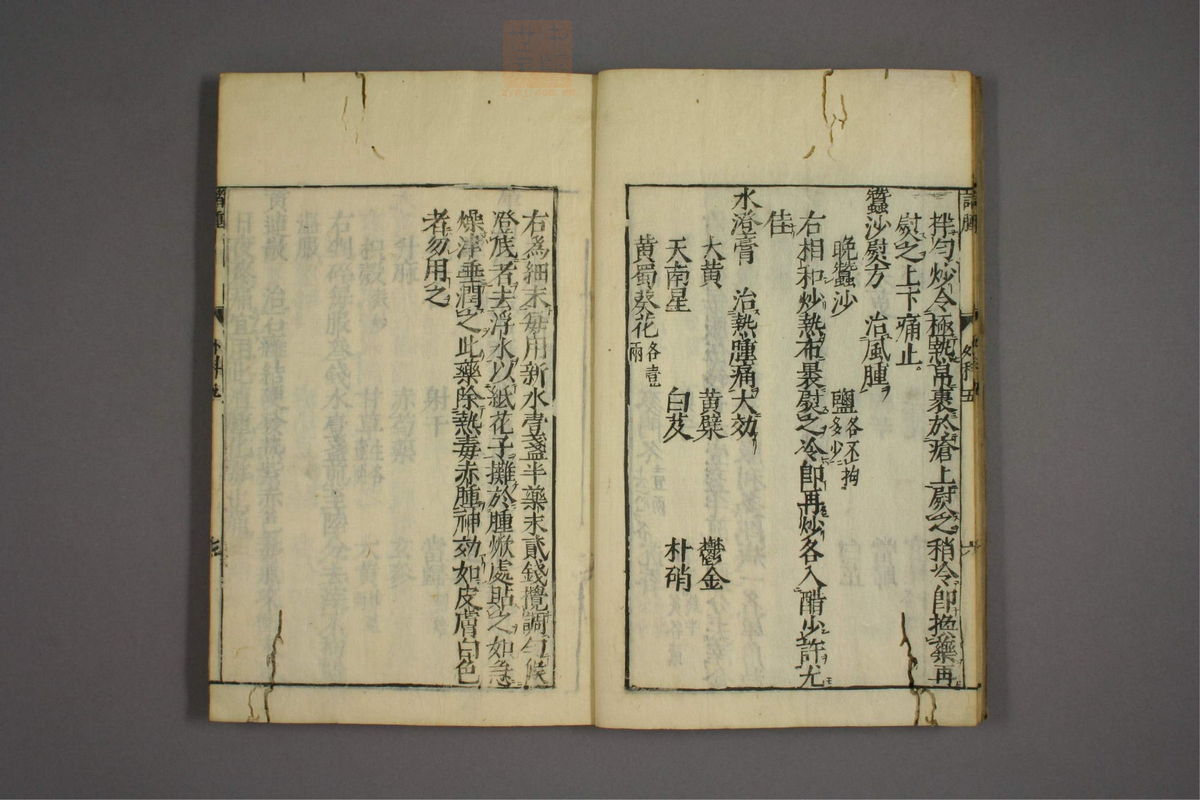 拌勻炒令極熱帛裹於瘡上熨之稍冷卽換藥再
熨之上下痛止
蠶沙熨方 治風腫
晩蠶沙 鹽各不拘多少
右相和炒熱布裹熨之冷卽再炒各入醋少許尤
佳
水澄膏 治熱腫痛大効
大黄 黄蘗 鬱金
天南星 白芨 朴硝
黄蜀葵花各壹兩
右為細末每用新水壹盞半藥末貳錢攪調勻候
澄底者去浮水以紙花子攤於腫焮處貼之如急
燥津垂潤之此藥除熱毒赤腫神効如皮膚白色
者勿用之